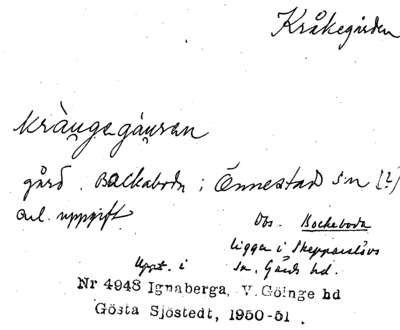 Kråkegården
kràu̯gegåu̯ren
gård. Backaboda i Önnestad sn (?)
enl. uppgift.
Obs. Bockeboda
ligger i Skepparslövs
sn. Gärds hd.
Uppt. i
Nr 4948 Ignaberga, V. Göinge hd
Gösta Sjöstedt, 1950-51.